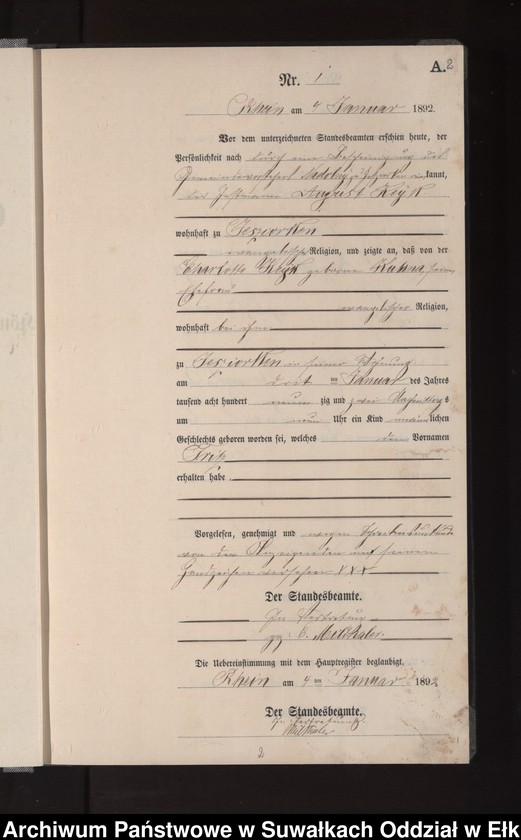 A. 2
Nr. 1
Rhein am 4 Januar 1892.
Vor dem unterzeichneten Standesbeamten erschien heute, der
Persönlichkeit nach durch eine Bescheinigung des
kannt,
der August Kzyk
wohnhaft zu Jesziorken
evangelischer Religion, und zeigte an, daß von der
Charlotte Kzyk geborene seiner
Ehefrau
evangelischer Religion,
wohnhaft bei ihm
zu Jesziorken in seiner Wohnung
am dritten Januar des Jahres
tausend acht hundert neunzig und zwei Nachmittags
um neun Uhr ein Kind männlichen
Geschlechts geboren worden sei, welches den Vornamen
Fritz
erhalten habe.
Vorgelesen, genehmigt und wegen Schreibensunkunde
von dem Anzeigenden mit seinem
Handzeichen versehen XXX
Der Standesbeamte.
In Vertretung
gez:
Die Uebereinstimmung mit dem Hauptregister beglaubigt.
Rhein am 4 ten Januar 1892
Der Standesbeamte.
In Vertretung
2
Archiwum Państwowe w Suwałkach Oddział w Ełk